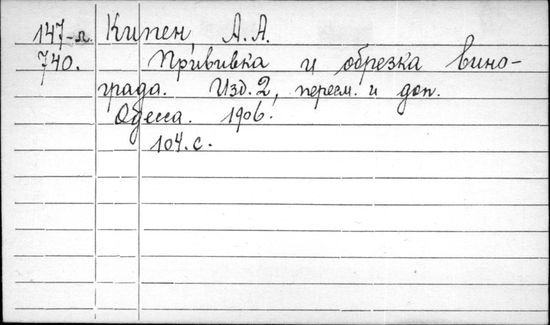 147-л. Кипен, А.А.
740. Прививка и обрезка вино-
града. Изд. 2, пересм. и доп.
Одесса. 1906.
104. с.